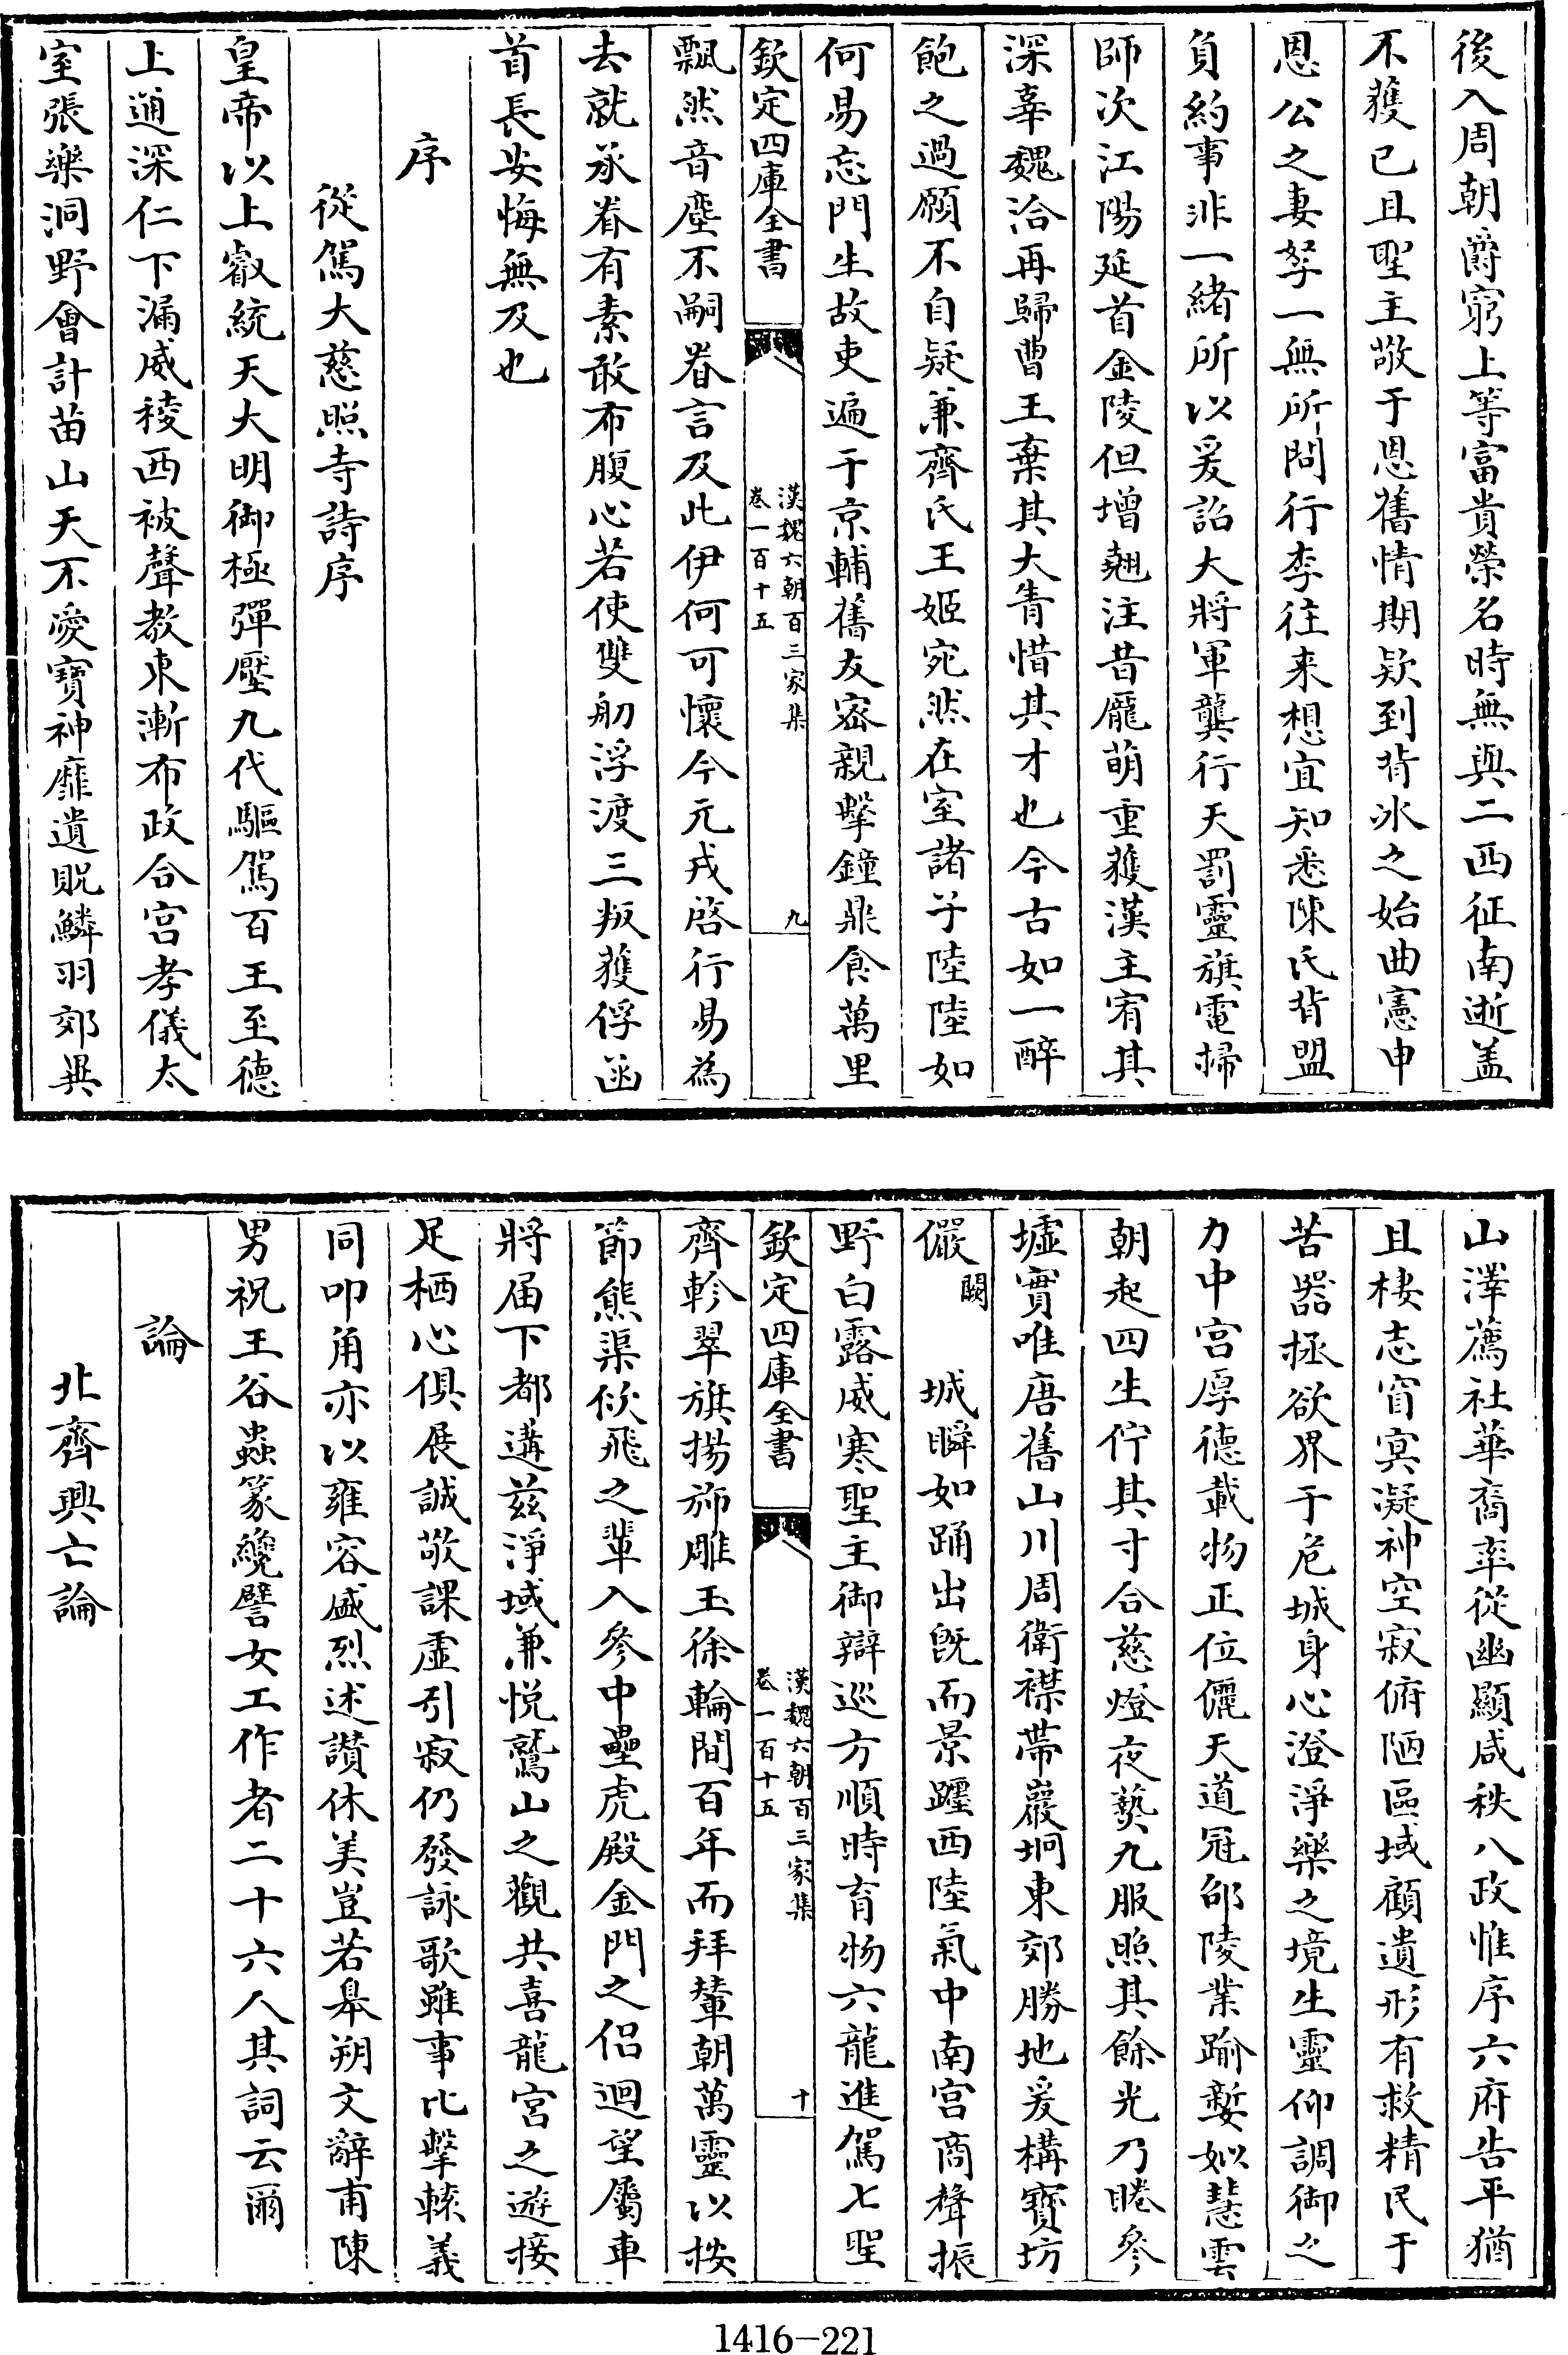 後入周朝爵窮上等富貴榮名時無與二西征南逝盖
不獲已且聖主敬于恩舊情期欵到背氷之始曲憲申
恩公之妻孥一無所問行李往来想宜知悉陳氏背盟
負約事非一緒所以爰詔大將軍龔行天罰靈旗電掃
師次江陽延首金陵但增翹注昔龐萌重獲漢主宥其
深辜魏洽再歸曹王棄其大眚惜其才也今古如一醉
飽之過願不自疑兼齊氏王姬宛然在室諸子陸陸如
何易忘門生故吏遍于京輔舊友密親擊鐘鼎食萬里
欽定四庫全書
漢魏六朝百三家集
卷一百十五
九
飄然音塵不嗣眷言及此伊何可懷今元戎啓行易為
去就承眷有素敢布腹心若使雙舠浮渡三叛獲俘函
首長安悔無及也
序
從駕大慈照寺詩序
皇帝以上叡統天大明御極彈壓九代驅駕百王至德
上通深仁下漏威稜西被聲教東漸布政合宮孝儀太
室張樂洞野會計苗山天不愛寶神靡遺貺鱗羽郊畢
山澤薦社華裔率從幽顯咸秩八政惟序六府告平猶
且棲志窅㝠凝神空寂俯陋區域顧遺形有救精民于
苦器拯欲界于危城身心澄淨樂之境生靈仰調御之
力中宮厚德載物正位儷天道冠邰陵業踰嫠姒慧雲
朝起四生佇其寸合慈燈夜爇九服照其餘光乃睠參
墟實唯唐舊山川周衛襟帶巖坰東郊勝地爰構寶坊
儼闕城瞬如踊出既而景躔西陸氣中南宮商聲振
野白露威寒聖主御辯巡方順時育物六龍進駕七聖
欽定四庫全書
漢魏六朝百三家集
卷一百十五
十
齊軫翠旗揚旆雕玉徐輪間百年而拜輦朝萬靈以按
節熊渠佽飛之輩入參中壘虎殿金門之侶迴望屬車
將届下都遘兹淨域兼悅鷲山之觀共喜龍宮之遊接
足栖心俱展誠敬課虛引寂仍發詠歌雖事比擊轅義
同叩角亦以雍容盛烈述讃休美豈若皋朔文辭甫陳
男祝王谷蟲篆纔譬女工作者二十六人其詞云爾
論
北齊興亡論
1416-221